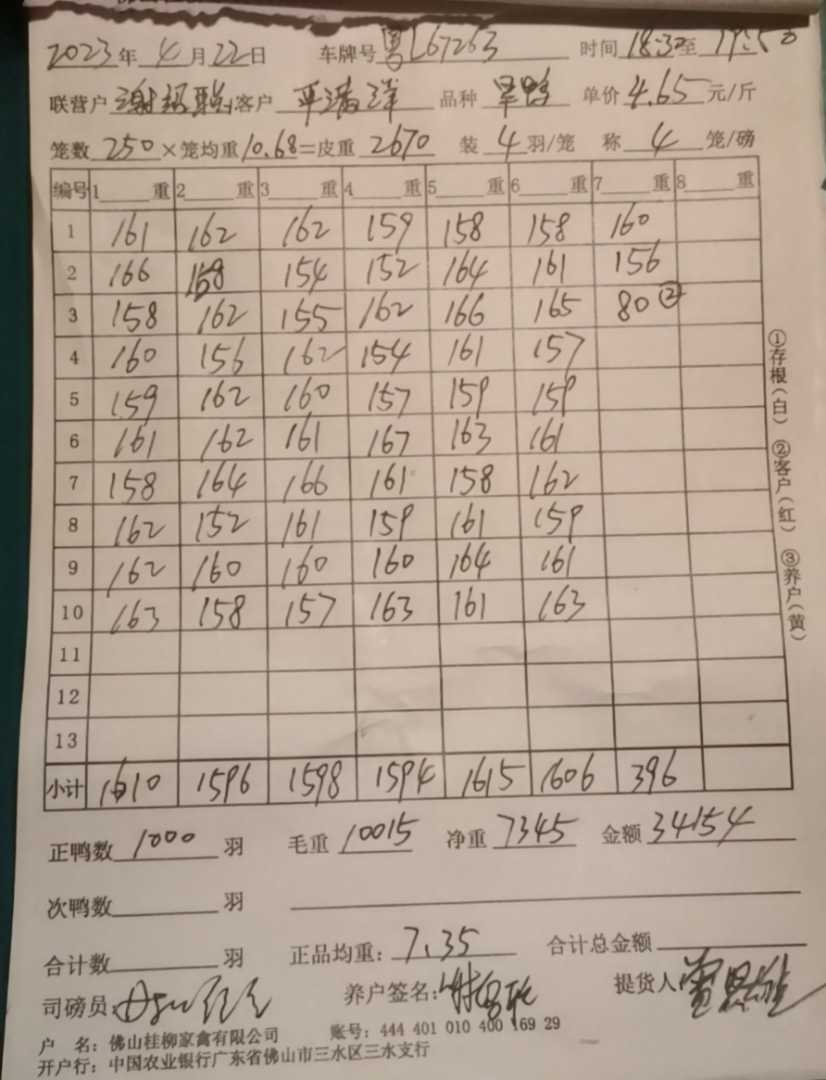 2023年 4 月 22日 车牌号 粤L67263 时间 18:30至 19:50
联营户 客户 品种 单价 4.65 元/斤
笼数 250 ×笼均重 10.68=皮重 2670 装 4 羽/笼 称 4 笼/磅
编号 1 重 2 重 3 重 4 重 5 重 6 重 7 重 8 重
1 161 162 162 159 158 158 160
2 166 158 154 152 164 161 156
3 158 162 155 162 166 165 80②
4 160 156 162 154 161 157
5 159 162 160 157 159 159
6 161 162 161 167 163 161
7 158 164 166 161 158 162
8 162 152 161 159 161 159
9 162 160 160 160 164 161
10 163 158 157 163 161 163
11
12
13
小计 1610 1596 1598 1594 1615 1606 396
①存根(白) ②客户(红) ③养户(黄)
正鸭数 1000 羽 毛重 10015 净重 7345 金额 34154
次鸭数 羽
合计数 羽 正品均重: 7.35 合计总金额
司磅员: 养户签名: 提货人
户 名: 佛山桂柳家禽有限公司 账号: 444 401 010 400 169 29
开户行: 中国农业银行广东省佛山市三水区三水支行